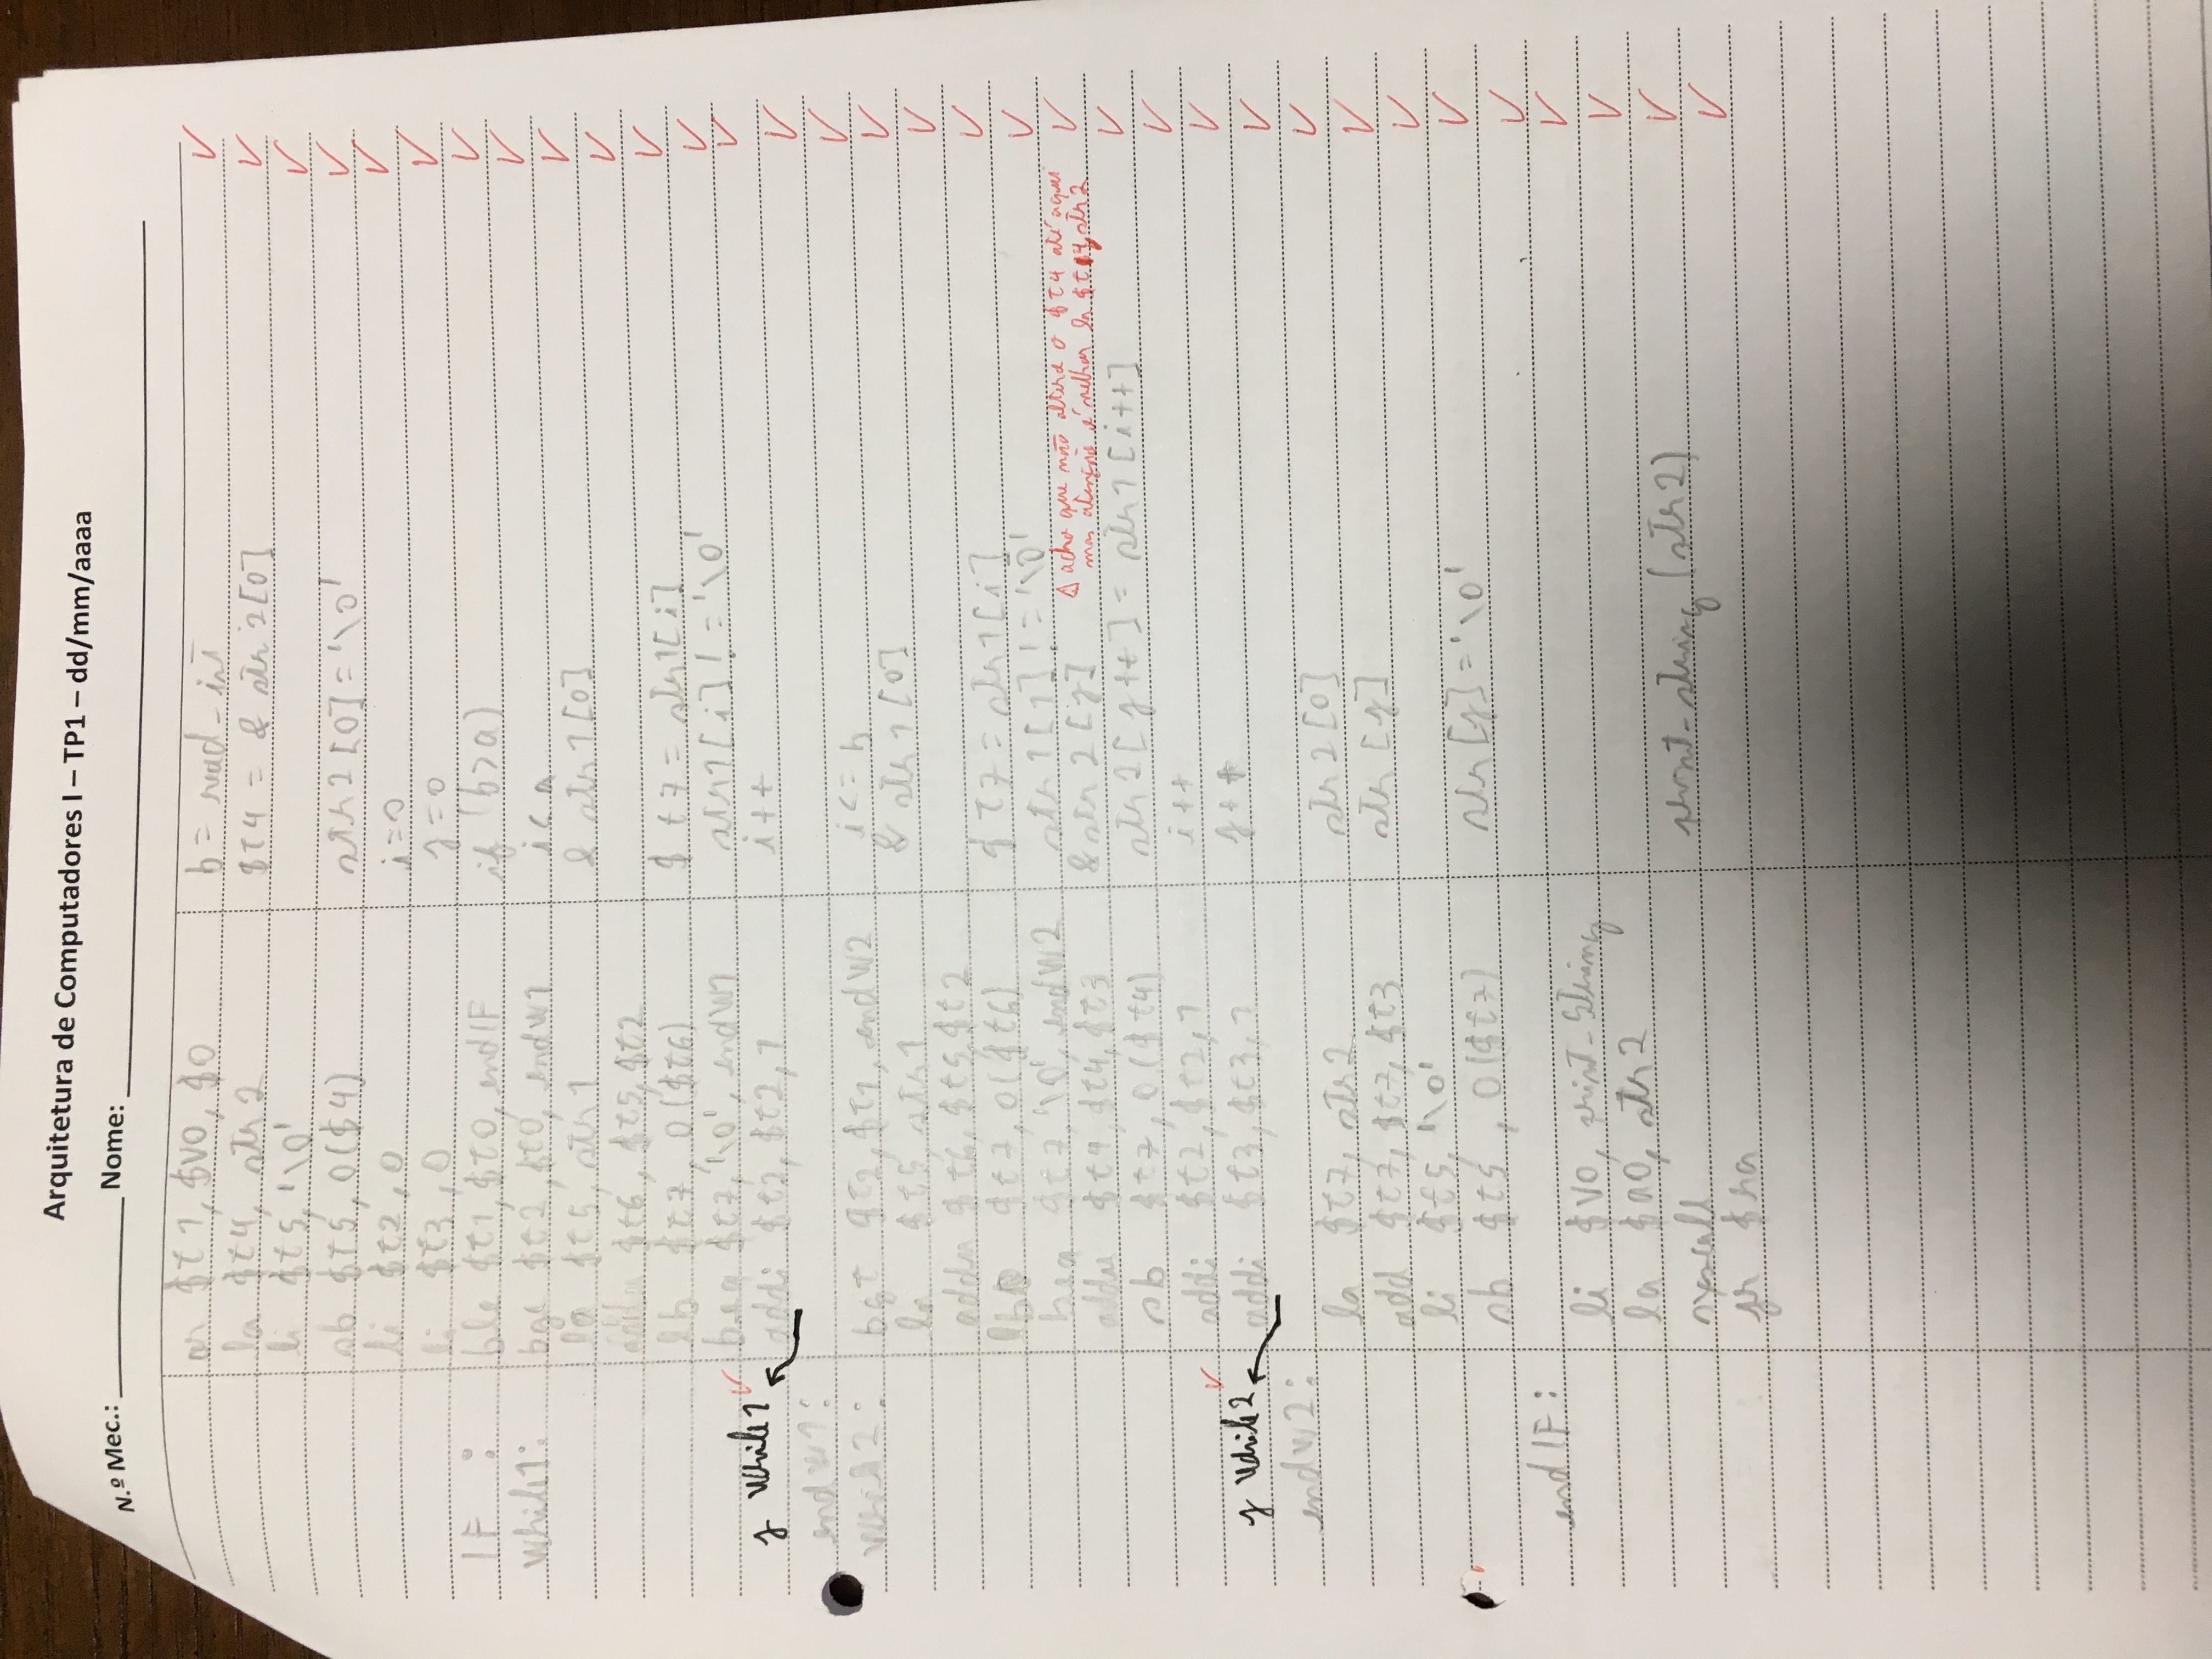 Arquitetura de Computadores I – TP1 – dd/mm/aaaa
N.º Mec.: Nome:
or $t1, $v0, $0 b = read_int ✓
la $t4, str2 $t4 = & str2[0] ✓
li $t5, '\0' ✓
sb $t5, 0($4) str2[0] = '\0' ✓
li $t2, 0 i=0 ✓
li $t3, 0 j=0 ✓
IF : ble $t1, $t0, endIF if (b>a) ✓
while1: bge $t2, $t0, endw1 i< a ✓
la $t5, str1 & str1[0] ✓
addu $t6, $t5, $t2 ✓
lb $t7, 0($t6) $t7 = str1[i] ✓
beq $t7, '\0', endw1 str1[i] != '\0' ✓
j while1 ✓ addi $t2, $t2, 1 i++ ✓
endw1: ✓
while2: bgt $t2, $t1, endw2 i<= b ✓
la $t5, str1 & str1[0] ✓
addu $t6, $t5, $t2 ✓
lb $t7, 0($t6) $t7 = str1[i] ✓
beq $t7, '\0', endw2 str1[1] != '\0' ✓
addu $t4, $t4, $t3 & str2[j] ⚠ acho que não alterei o $t4 até aqui ✓
mas atenção é melhor la $t4, str2
sb $t7, 0($t4) str2[j++] = str1[i++] ✓
addi $t2, $t2, 1 i++ ✓
j while2 ✓ addi $t3, $t3, 1 j++ ✓
endw2: ✓
la $t7, str2 str2[0] ✓
add $t7, $t7, $t3 str[j] ✓
li $t5, '\0' ✓
sb $t5, 0($t7) str[j] = '\0' ✓
endIF: ✓
li $v0, print_String ✓
la $a0, str2 ✓
syscall print_string(str2) ✓
jr $ra ✓